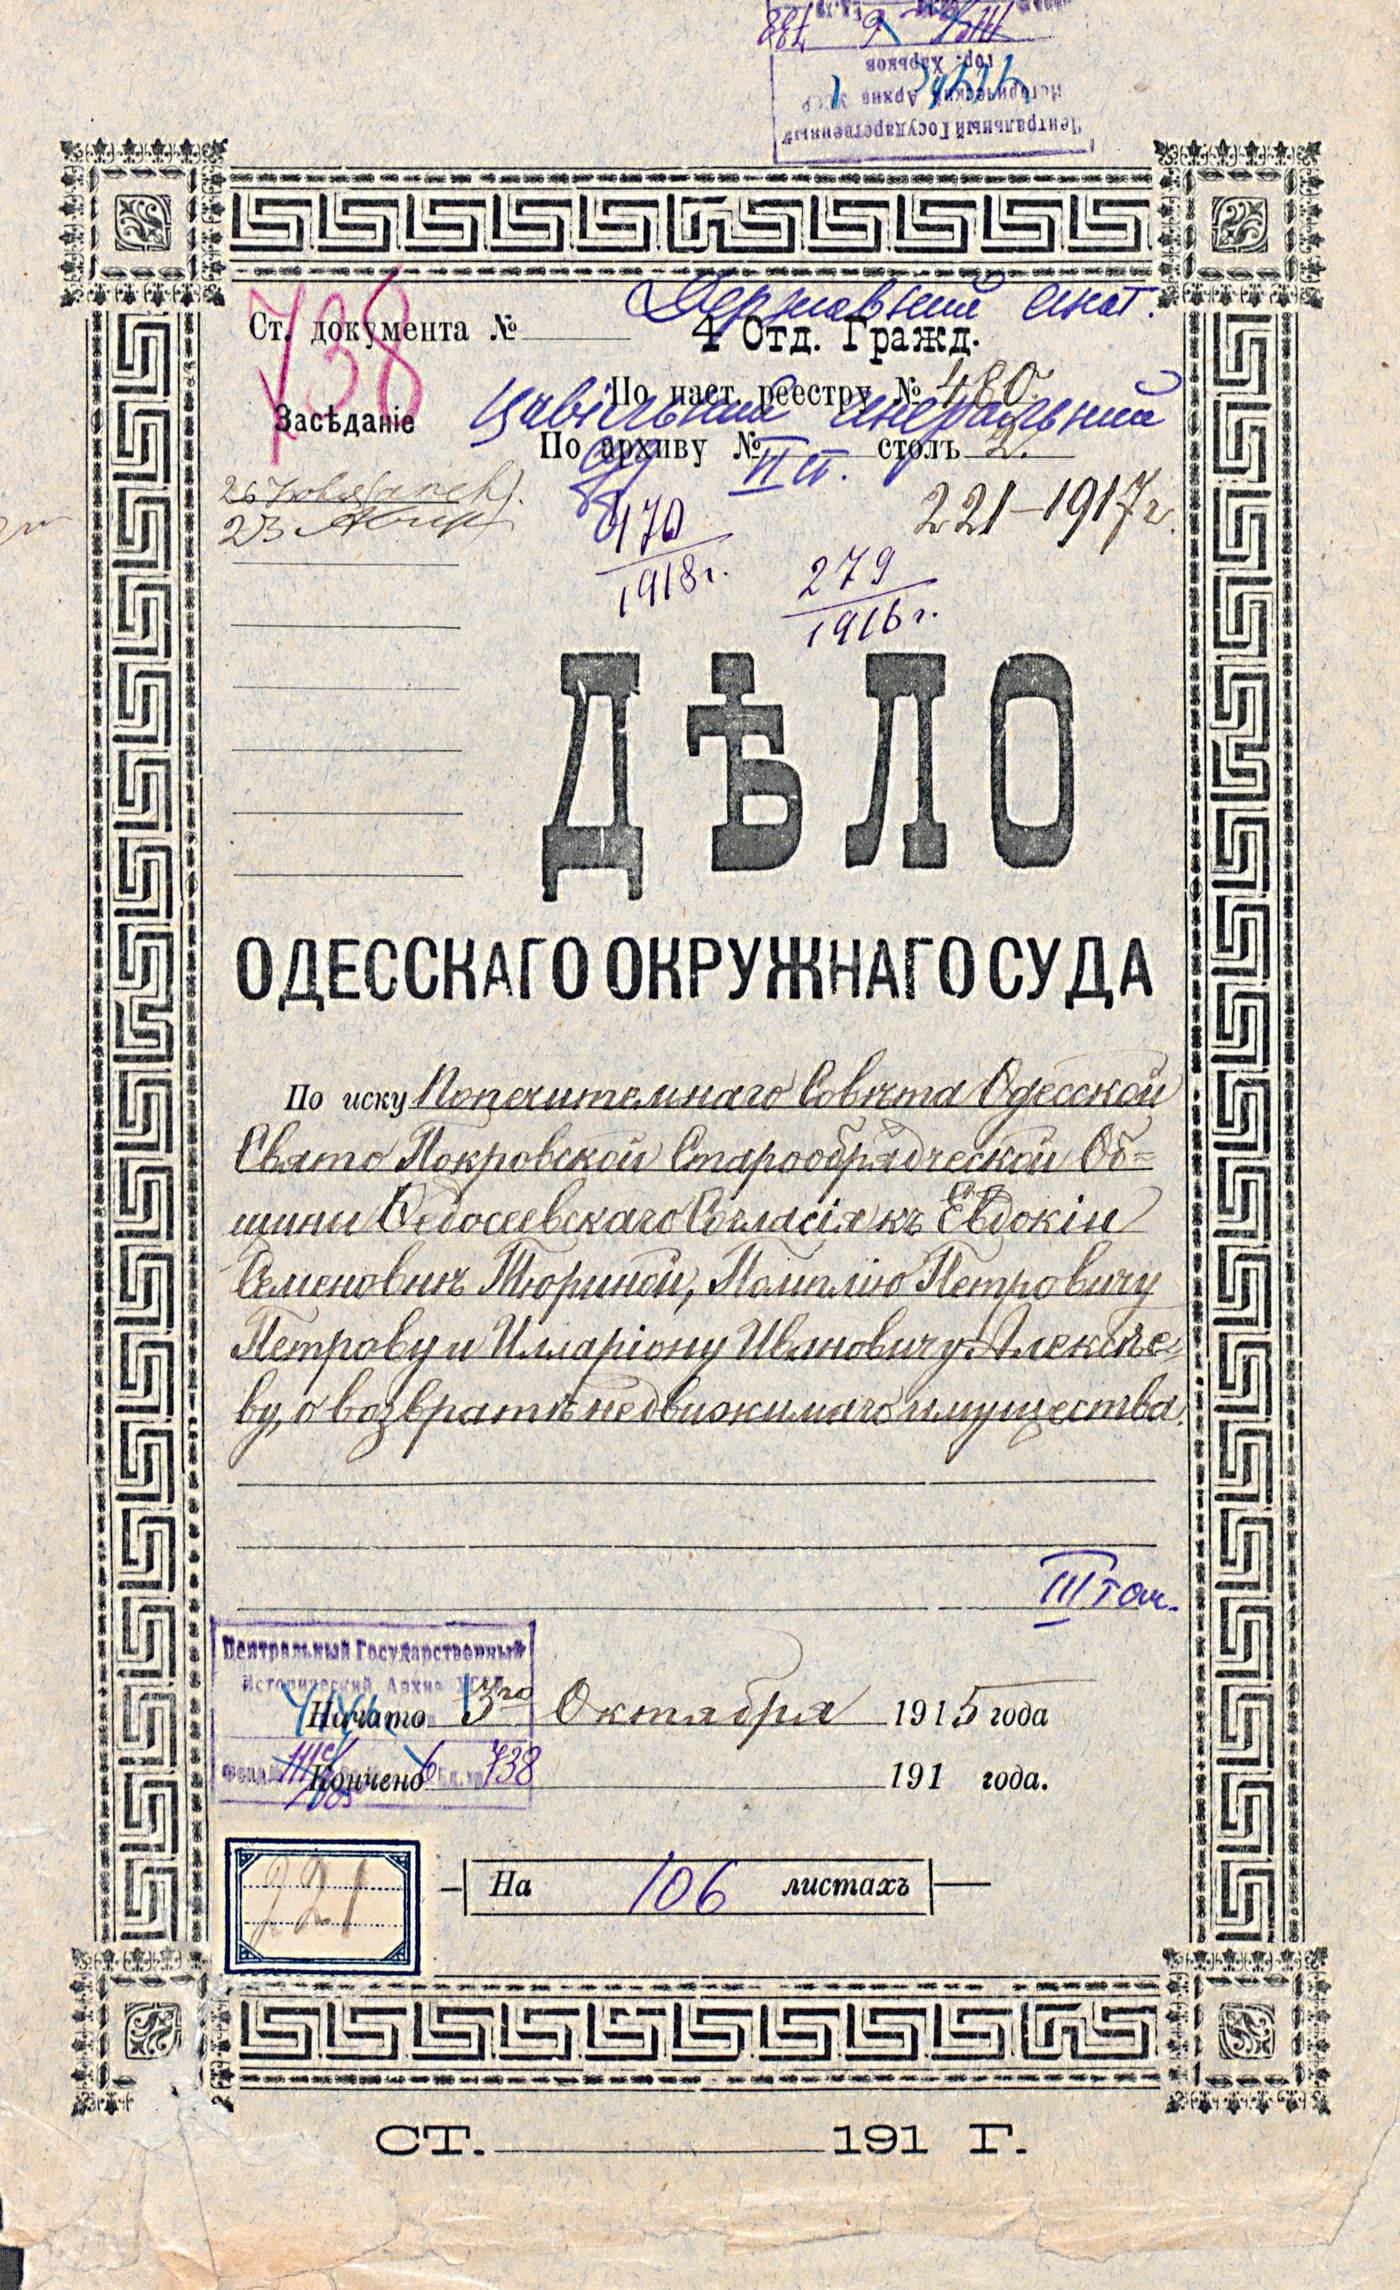 Центральный Государственный
Исторический Архив УССР
гор. Харьков
6 738
738
Державний сенат.
Ст. документа №
4 Отд. Гражд.
По наст. реестру № 480
Засѣданіе
Цивільний Генеральний
По архиву № столъ 2.
суд II
23 221–1917 г.
470
1918 г.
279
1916 г.
ДѢЛО
ОДЕССКАГО ОКРУЖНАГО СУДА
По иску Попечительнаго Совѣта Одесской
Свято Покровской Старообрядческой Об=
щины Ѳедосеевскаго Согласія къ Евдокіи
Семеновнѣ Тюриной, Памплію Петровичу
Петрову и Илларіону Ивановичу Алексѣе-
ву, о возвратѣ недвижимаго имущества.
III
Центральный Государственный
Исторический Архив УССР
Начато 3го Октября 1915 года
Фонд № 6 738
Кончено 191 года.
221
На 106 листахъ
СТ. 191 Г.